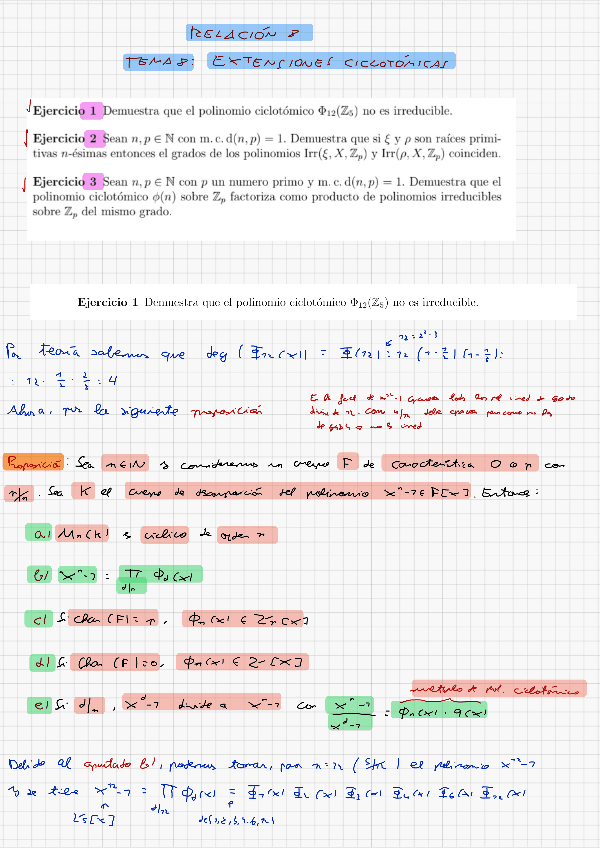 RELACIÓN 8
TEMA 8: EXTENSIONES CICLOTÓMICAS
Ejercicio 1 Demuestra que el polinomio ciclotómico Φ₁₂(ℤ₅) no es irreducible.
Ejercicio 2 Sean n, p ∈ ℕ con m. c. d(n, p) = 1. Demuestra que si ξ y ρ son raíces primi-
tivas n-ésimas entonces el grados de los polinomios Irr(ξ, X, ℤₚ) y Irr(ρ, X, ℤₚ) coinciden.
Ejercicio 3 Sean n, p ∈ ℕ con p un numero primo y m. c. d(n, p) = 1. Demuestra que el
polinomio ciclotómico ϕ(n) sobre ℤₚ factoriza como producto de polinomios irreducibles
sobre ℤₚ del mismo grado.
Ejercicio 1 Demuestra que el polinomio ciclotómico Φ₁₂(ℤ₅) no es irreducible.
12 = 2²·3
Por teoría sabemos que deg(Φ₁₂(x)) = Φ(12) = 12 (1-1/2)(1-1/3) =
= 12 · 1/2 · 2/3 = 4
Ahora, por la siguiente proposición
Proposición: Sea n∈ℕ y consideremos un cuerpo F de característica 0 o p con
p∤n. Sea K el cuerpo de descomposición del polinomio xⁿ-1 ∈ F[x]. Entonces:
a) Mₙ(K) es cíclico de orden n
b) xⁿ-1 = ∏ Φd(x)
d|n
c) Si Char(F) = p, Φₙ(x) ∈ ℤₚ[x]
d) Si Char(F) = 0, Φₙ(x) ∈ ℤ[x]
múltiplo de pol. ciclotómico
e) Si d|n, xᵈ-1 divide a xⁿ-1 con (xⁿ-1)/(xᵈ-1) = Φₙ(x) · q(x)
Debido al apartado b), podemos tomar, para n=12 (5∤12) el polinomio x¹²-1
y se tiene x¹²-1 = ∏ Φd(x) = Φ₁(x) Φ₂(x) Φ₃(x) Φ₄(x) Φ₆(x) Φ₁₂(x)
d|12
ℤ₅[x] d∈{1,2,3,4,6,12}